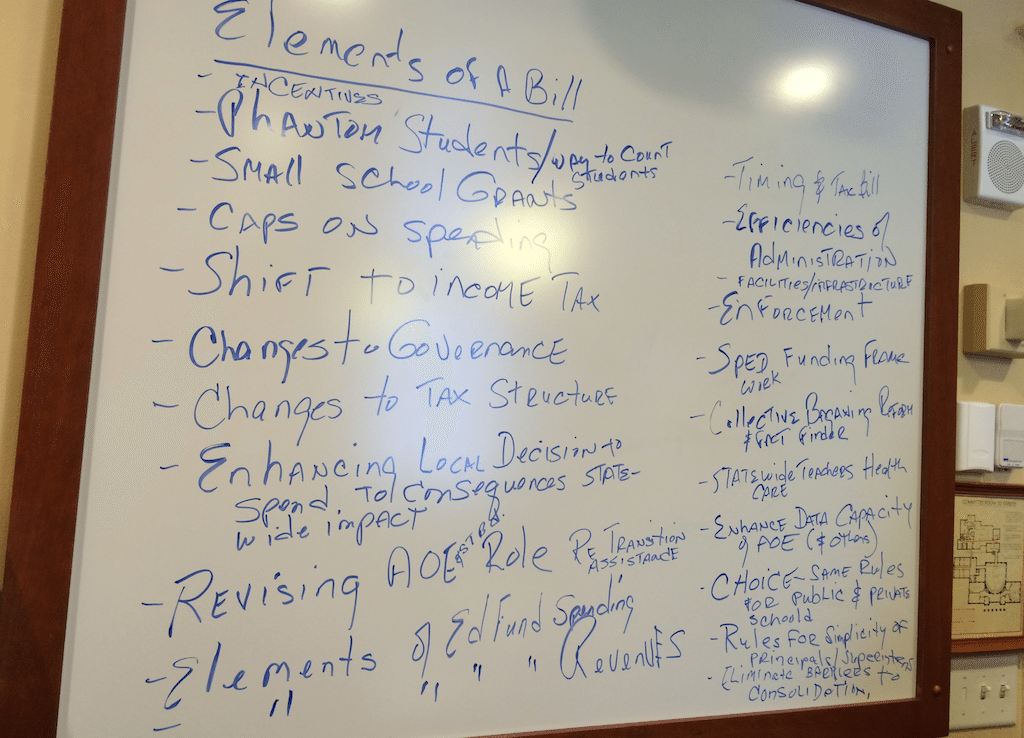 Elements of A Bill
- INCENTIVES
- PHANTOM Students/way to Count
Students
- SMALL School GRANTS
- CAPS ON Spending
- Shift to INCOME TAX
- Changes to GOVERNANCE
- Changes to TAX STRUCTURE
- ENHANCING LOCAL Decision to
Spend TO CONSEQUENCES STATE-
wide impact
- REVISING AOE & STBD. Role RE TRANSITION
ASSISTANCE
- Elements of Ed Fund Spending
- " " " " REVENUES
- Timing & TAX Bill
- EFFICIENCIES of
ADMINISTRATION
- FACILITIES/INFRASTRUCTURE
- ENFORCEMENT
- SPED Funding FRAME
WORK
- Collective BARGAINING REFORM
& FACT Finder
- STATEwide TEACHERS Health
CARE
- ENHANCE DATA CAPACITY
of AOE (& others)
- CHOICE - SAME RULES
FOR PUBLIC & PRIVATE
Schoold
- RULES FOR Simplicity OF
PRINCIPALS/Superintens
- Eliminate BARRIERS to
CONSOLIDATION.